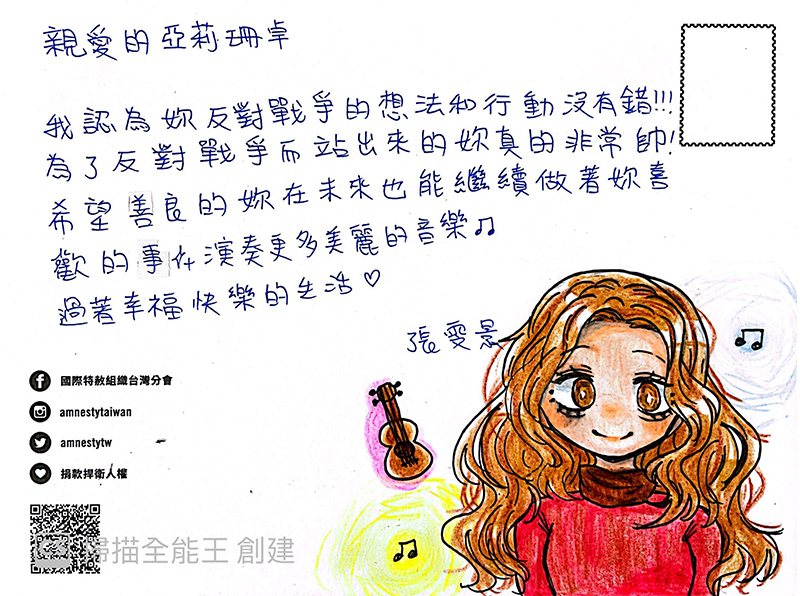 親愛的亞莉珊卓
我認為妳反對戰爭的想法和行動沒有錯!!!
為了反對戰爭而站出來的妳真的非常帥!
希望善良的妳在未來也能繼續做著妳喜
歡的事 演奏更多美麗的音樂♫
過著幸福快樂的生活♡
張雯景
國際特赦組織台灣分會
amnestytaiwan
amnestytw
捐款捍衛人權
掃描全能王 創建